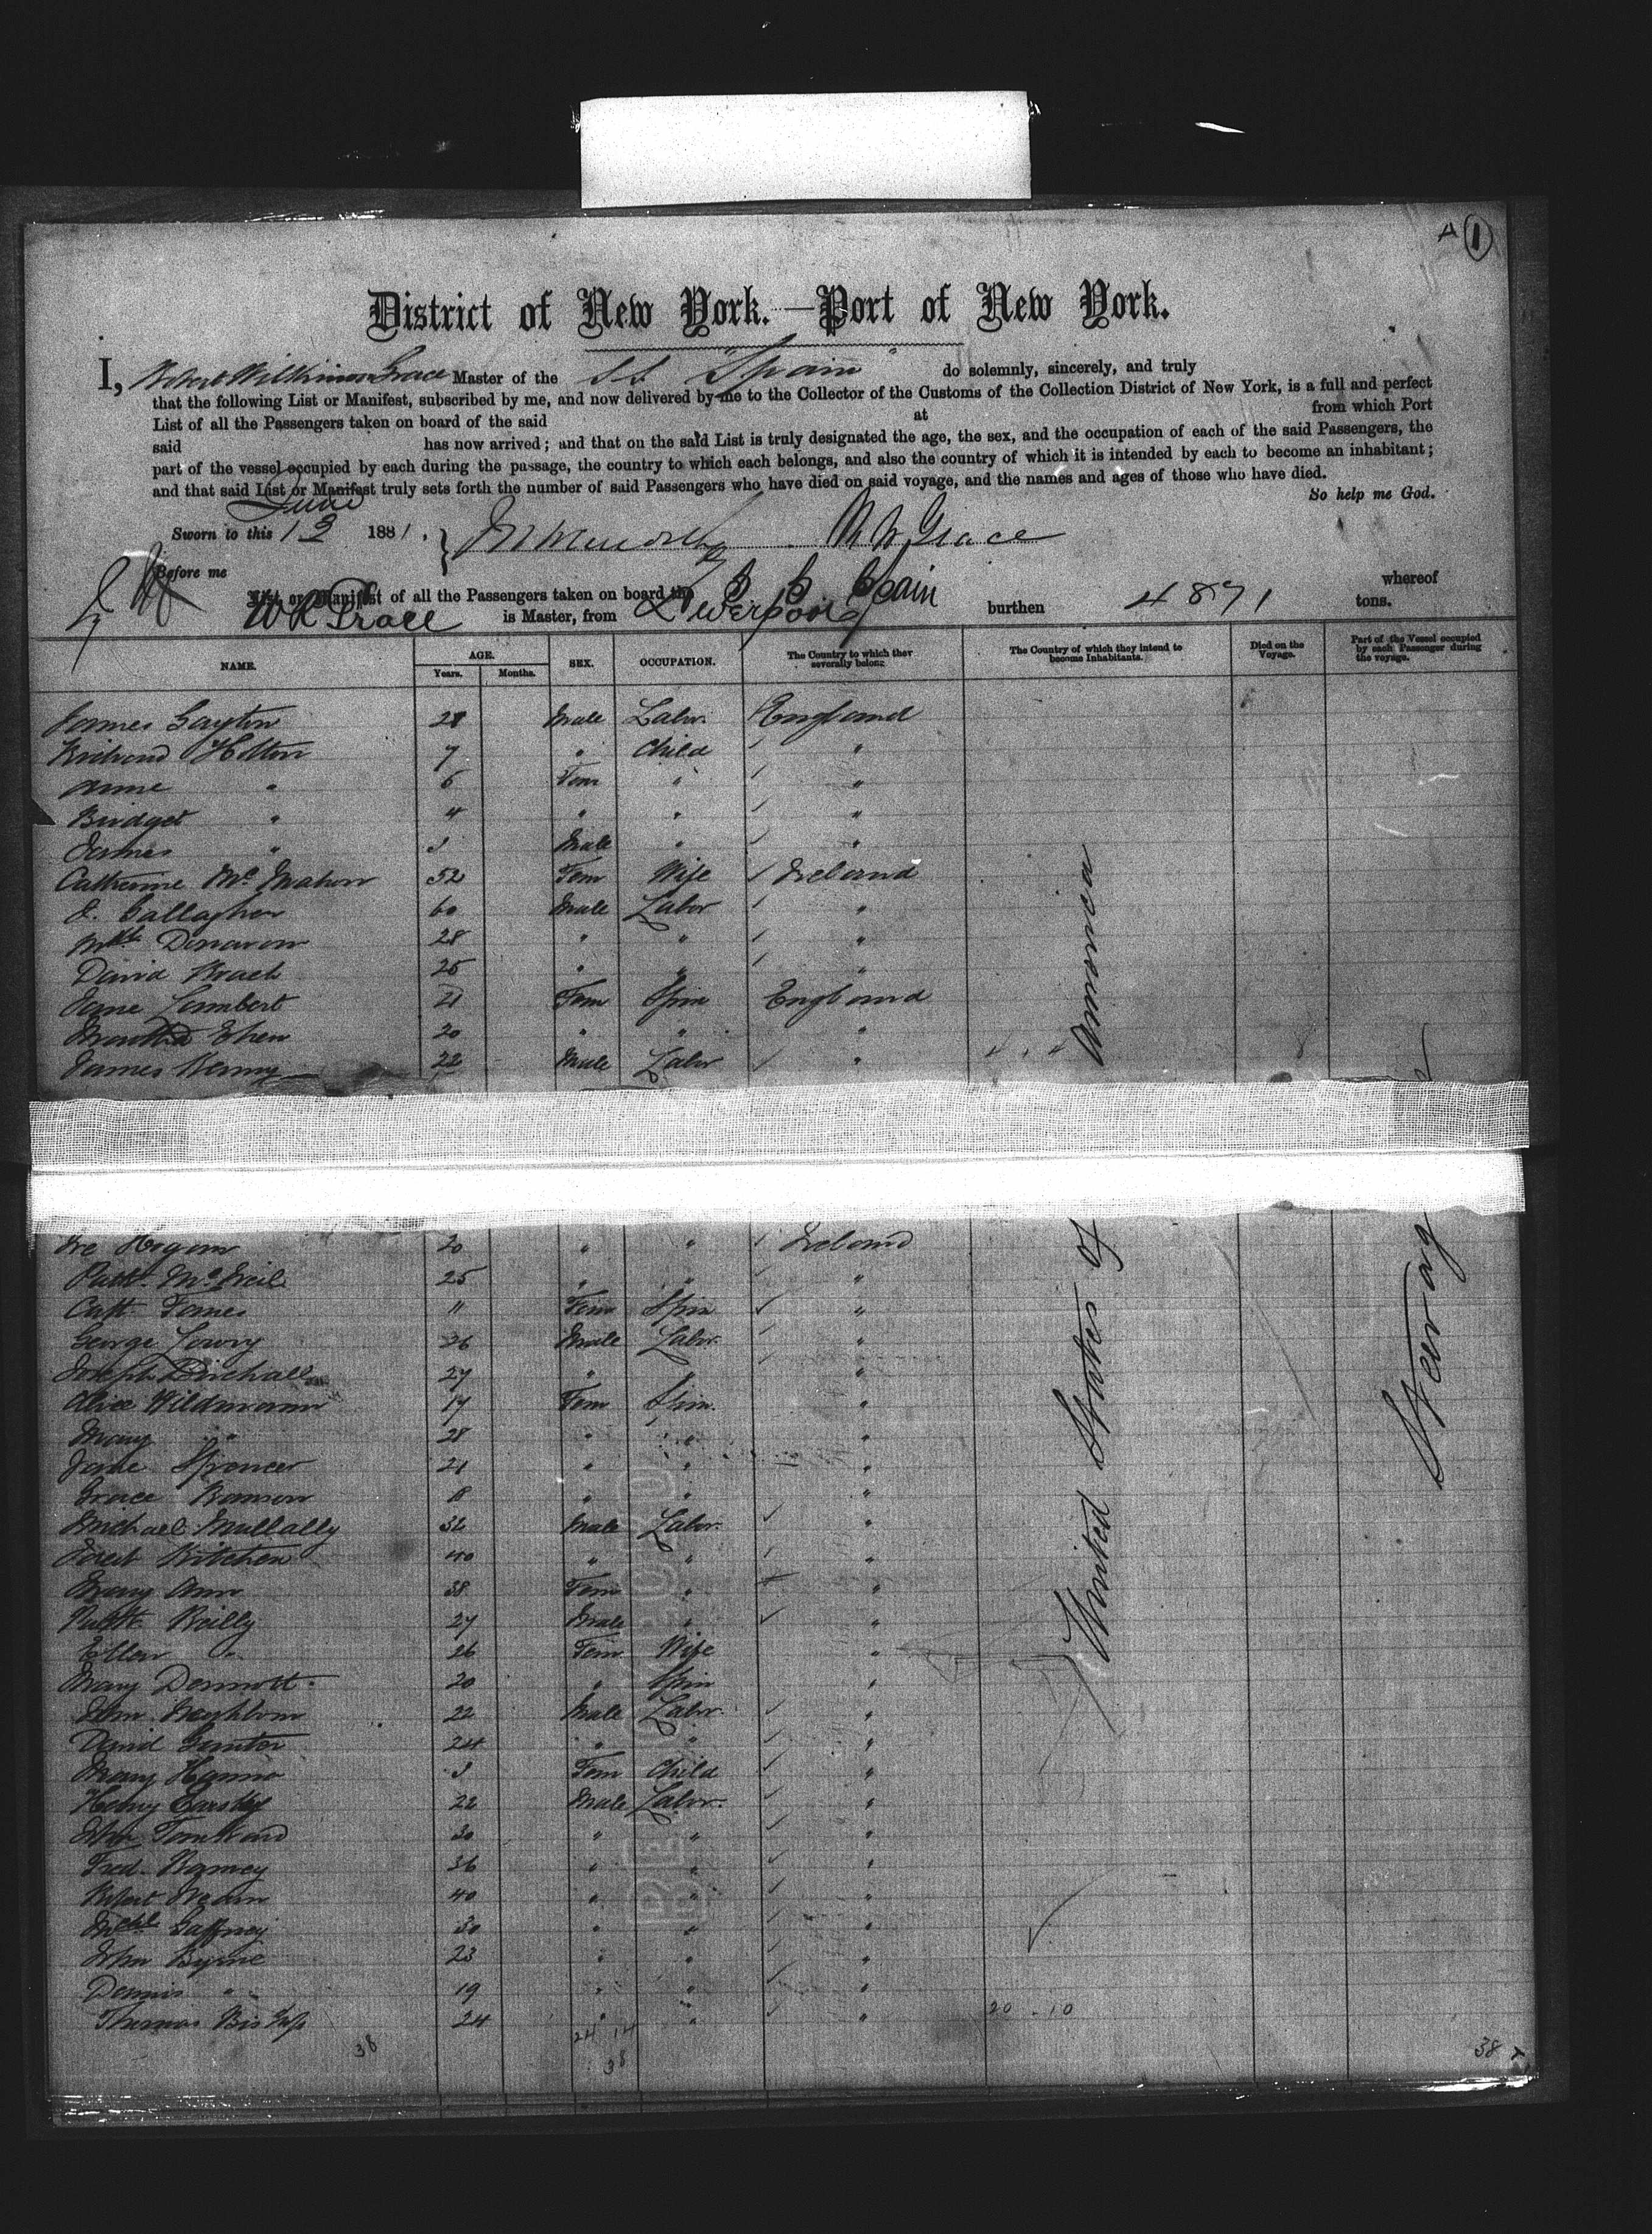 1
District of New York.—Port of New York.
I, Robert Wilkinson Grace Master of the SS "Spain" do solemnly, sincerely, and truly
that the following List or Manifest, subscribed by me, and now delivered by me to the Collector of the Customs of the Collection District of New York, is a full and perfect
List of all the Passengers taken on board of the said at from which Port
said has now arrived; and that on the said List is truly designated the age, the sex, and the occupation of each of the said Passengers, the
part of the vessel occupied by each during the passage, the country to which each belongs, and also the country of which it is intended by each to become an inhabitant;
and that said List or Manifest truly sets forth the number of said Passengers who have died on said voyage, and the names and ages of those who have died.
So help me God.
June
Sworn to this 13 1881. R W Grace
Before me
List or Manifest of all the Passengers taken on board the S S Spain whereof
is Master, from Liverpool burthen 4871 tons.
NAME. AGE. Years. Months. SEX. OCCUPATION. The Country to which they severally belong. The Country of which they intend to become Inhabitants. Died on the Voyage. Part of the Vessel occupied by each Passenger during the voyage.
James Layton 28 Male Labr. England
Richard Holton 7 " Child "
Anne " 6 Fem " "
Bridget " 4 " " "
James " 3 Male " "
Catherine Mc Mahon 52 Fem Wife Ireland
J. Callagher 60 Male Labor "
Mchl Donavon 28 " " "
David 25 " " "
Jane Lambert 21 Fem Spin England
20 " " "
James Kenny 22 Male Labor "
Hogan 20 " " Ireland
Patk. Mc Neil 25 " " "
Cath. 11 Fem Spin "
George Lowry 26 Male Labr. "
Joseph Birchall 27 " "
Alice Wildmann 17 Fem Spin. "
Mary " 28 " " "
Jane Spencer 21 " " "
Grace 18 " " "
Michael Mullally 32 Male Labor. "
Kitchen 40 " " "
Mary Ann 38 Fem " "
Patk. Reilly 27 Male " "
Ellen " 26 Fem Wife "
Mary Dermott. 20 " Spin "
John 22 Male Labor. "
David 24 " " "
Mary Hanna 3 Fem Child "
Henry 22 Male Labor. "
John 30 " " "
Fred. 36 " " "
Robert 40 " " "
Mchl Gaffney 30 " " "
John Byrne 23 " " "
Dennis " 19 " " "
Thomas Bishop 24 " " " 20 - 10
United States of America
Steerage
38 24 14 38
38